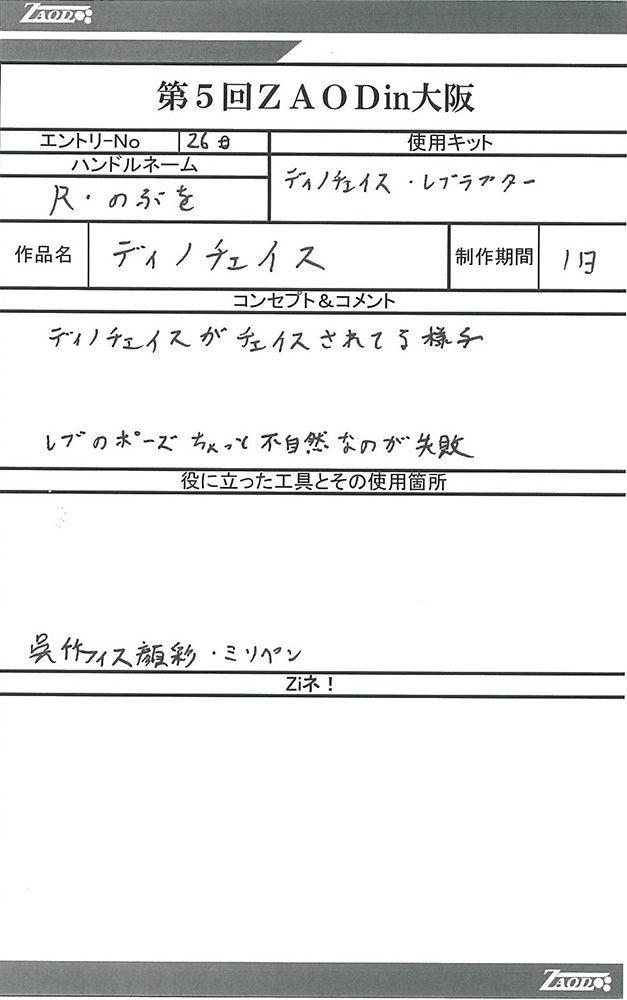 ZAOD
第5回ZAODin大阪
エントリ-No 26日 使用キット
ハンドルネーム
R・のぶを
ディノチェイス・レブラプター
作品名 ディノチェイス 制作期間 1日
コンセプト&コメント
ディノチェイスがチェイスされてる様子
レブのポーズちょっと不自然なのが失敗
役に立った工具とその使用箇所
呉竹アイス顔彩・ミリペン
Ziネ!
ZAOD